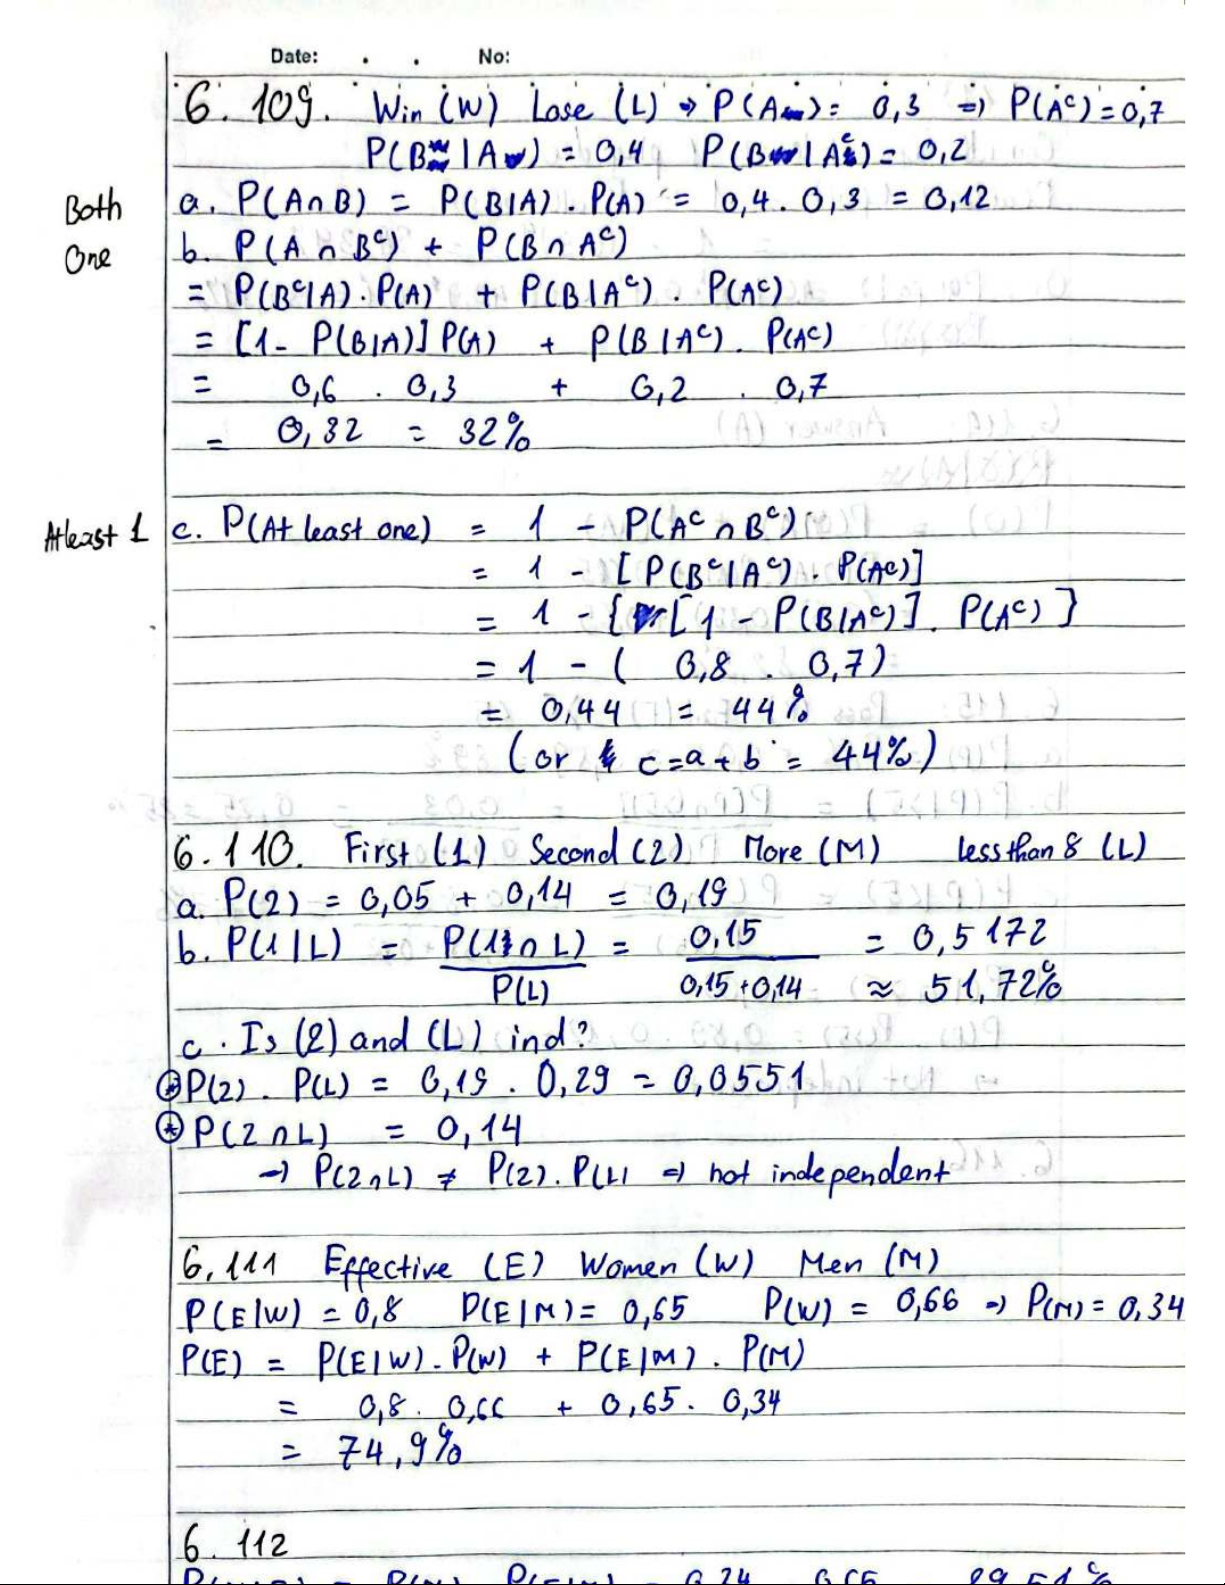 Date: . . No:
6.109. Win (W) Lose (L) → P(A) = 0,3 => P(Aᶜ) = 0,7
P(B|A) = 0,4 P(B|Aᶜ) = 0,2
Both a. P(A∩B) = P(B|A) . P(A) = 0,4 . 0,3 = 0,12
One b. P(A ∩ Bᶜ) + P(B ∩ Aᶜ)
= P(Bᶜ|A) . P(A) + P(B|Aᶜ) . P(Aᶜ)
= [1 - P(B|A)] P(A) + P(B|Aᶜ) . P(Aᶜ)
= 0,6 . 0,3 + 0,2 . 0,7
= 0,32 = 32%
Atleast 1 c. P(At least one) = 1 - P(Aᶜ ∩ Bᶜ)
= 1 - [P(Bᶜ|Aᶜ) . P(Aᶜ)]
= 1 - {[1 - P(B|Aᶜ)] . P(Aᶜ)}
= 1 - ( 0,8 . 0,7)
= 0,44 = 44%
(or c = a + b = 44%)
6.110. First (1) Second (2) More (M) less than 8 (L)
a. P(2) = 0,05 + 0,14 = 0,19
b. P(1|L) = P(1 ∩ L) = 0,15 = 0,5172
P(L) 0,15+0,14 ≈ 51,72%
c. Is (2) and (L) ind?
⊛ P(2) . P(L) = 0,19 . 0,29 = 0,0551
⊛ P(2∩L) = 0,14
→ P(2∩L) ≠ P(2) . P(L) => not independent
6.111 Effective (E) Women (W) Men (M)
P(E|W) = 0,8 P(E|M) = 0,65 P(W) = 0,66 => P(M) = 0,34
P(E) = P(E|W) . P(W) + P(E|M) . P(M)
= 0,8 . 0,66 + 0,65 . 0,34
= 74,9%
6.112